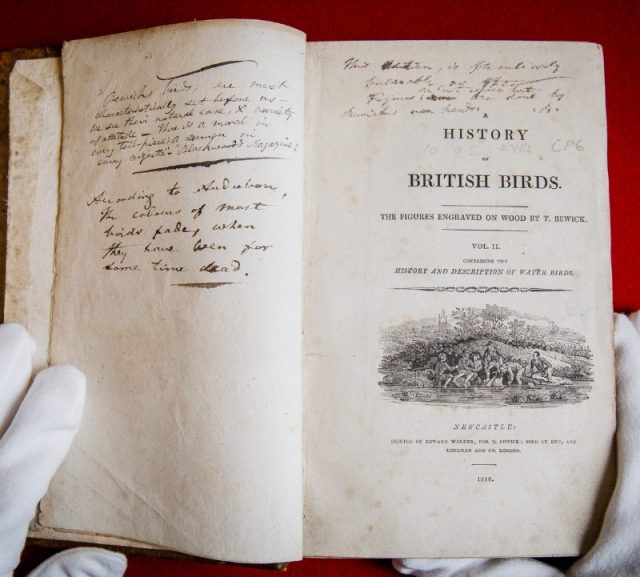 "Bewick's birds, are most
characteristically set before us —
we see their natural ease, & variety
of attitude — There is a moral in
every tail-piece; a sermon in
every vignette." Blackwood's Magazine
According to Audubon,
the colours of most
birds fade, when
they have been for
some time dead.
This edition, is
valuable as
are done by
Bewick's own hands.
A
HISTORY
OF
BRITISH BIRDS.
CP6
THE FIGURES ENGRAVED ON WOOD BY T. BEWICK.
VOL. II.
CONTAINING THE
HISTORY AND DESCRIPTION OF WATER BIRDS.
NEWCASTLE:
PRINTED BY EDWARD WALKER, FOR T. BEWICK: SOLD BY HIM, AND
LONGMAN AND CO. LONDON.
1816.